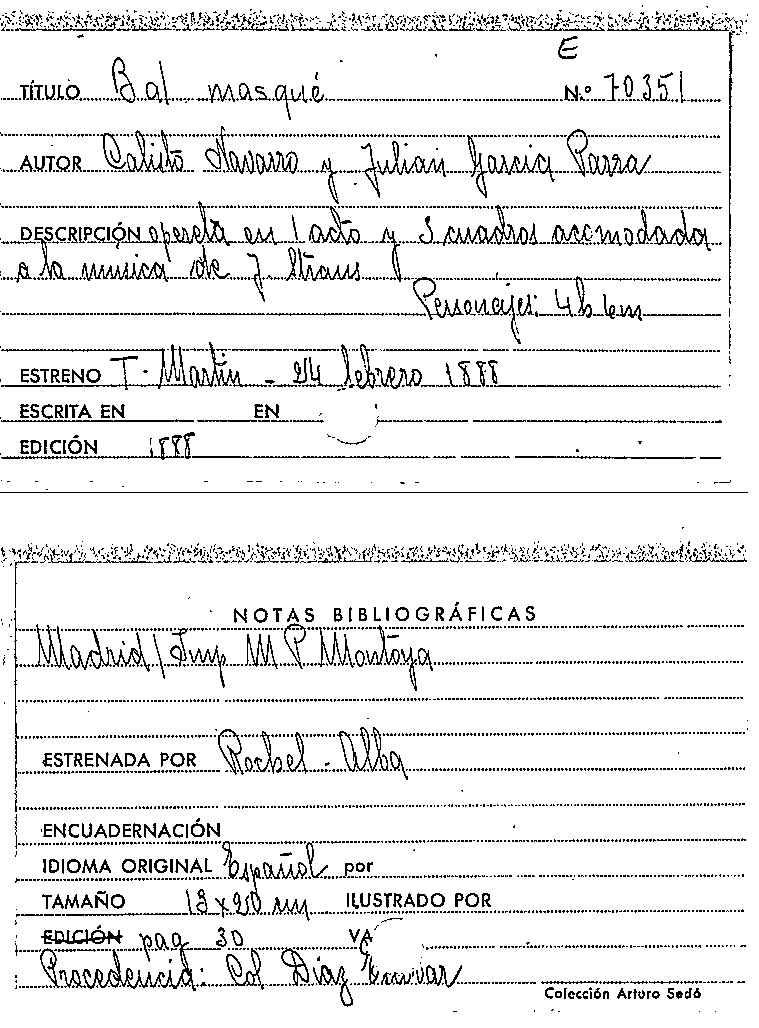 E
TÍTULO Bal masqué N.º 70351
AUTOR Calisto Navarro y Julian Garcia Parra
DESCRIPCIÓN opereta en 1 acto y 3 cuadros acomodada
a la música de J. Straus
Personajes: 4h 6m
ESTRENO T. Martin - 24 febrero 1888
ESCRITA EN EN
EDICIÓN 1888
NOTAS BIBLIOGRÁFICAS
Madrid / Imp M P Montoya
ESTRENADA POR - Alba
ENCUADERNACIÓN
IDIOMA ORIGINAL Español por
TAMAÑO 13 x 20 ILUSTRADO POR
EDICIÓN pag 30 VA
Procedencia: Col Díaz
Colección Arturo Sedó